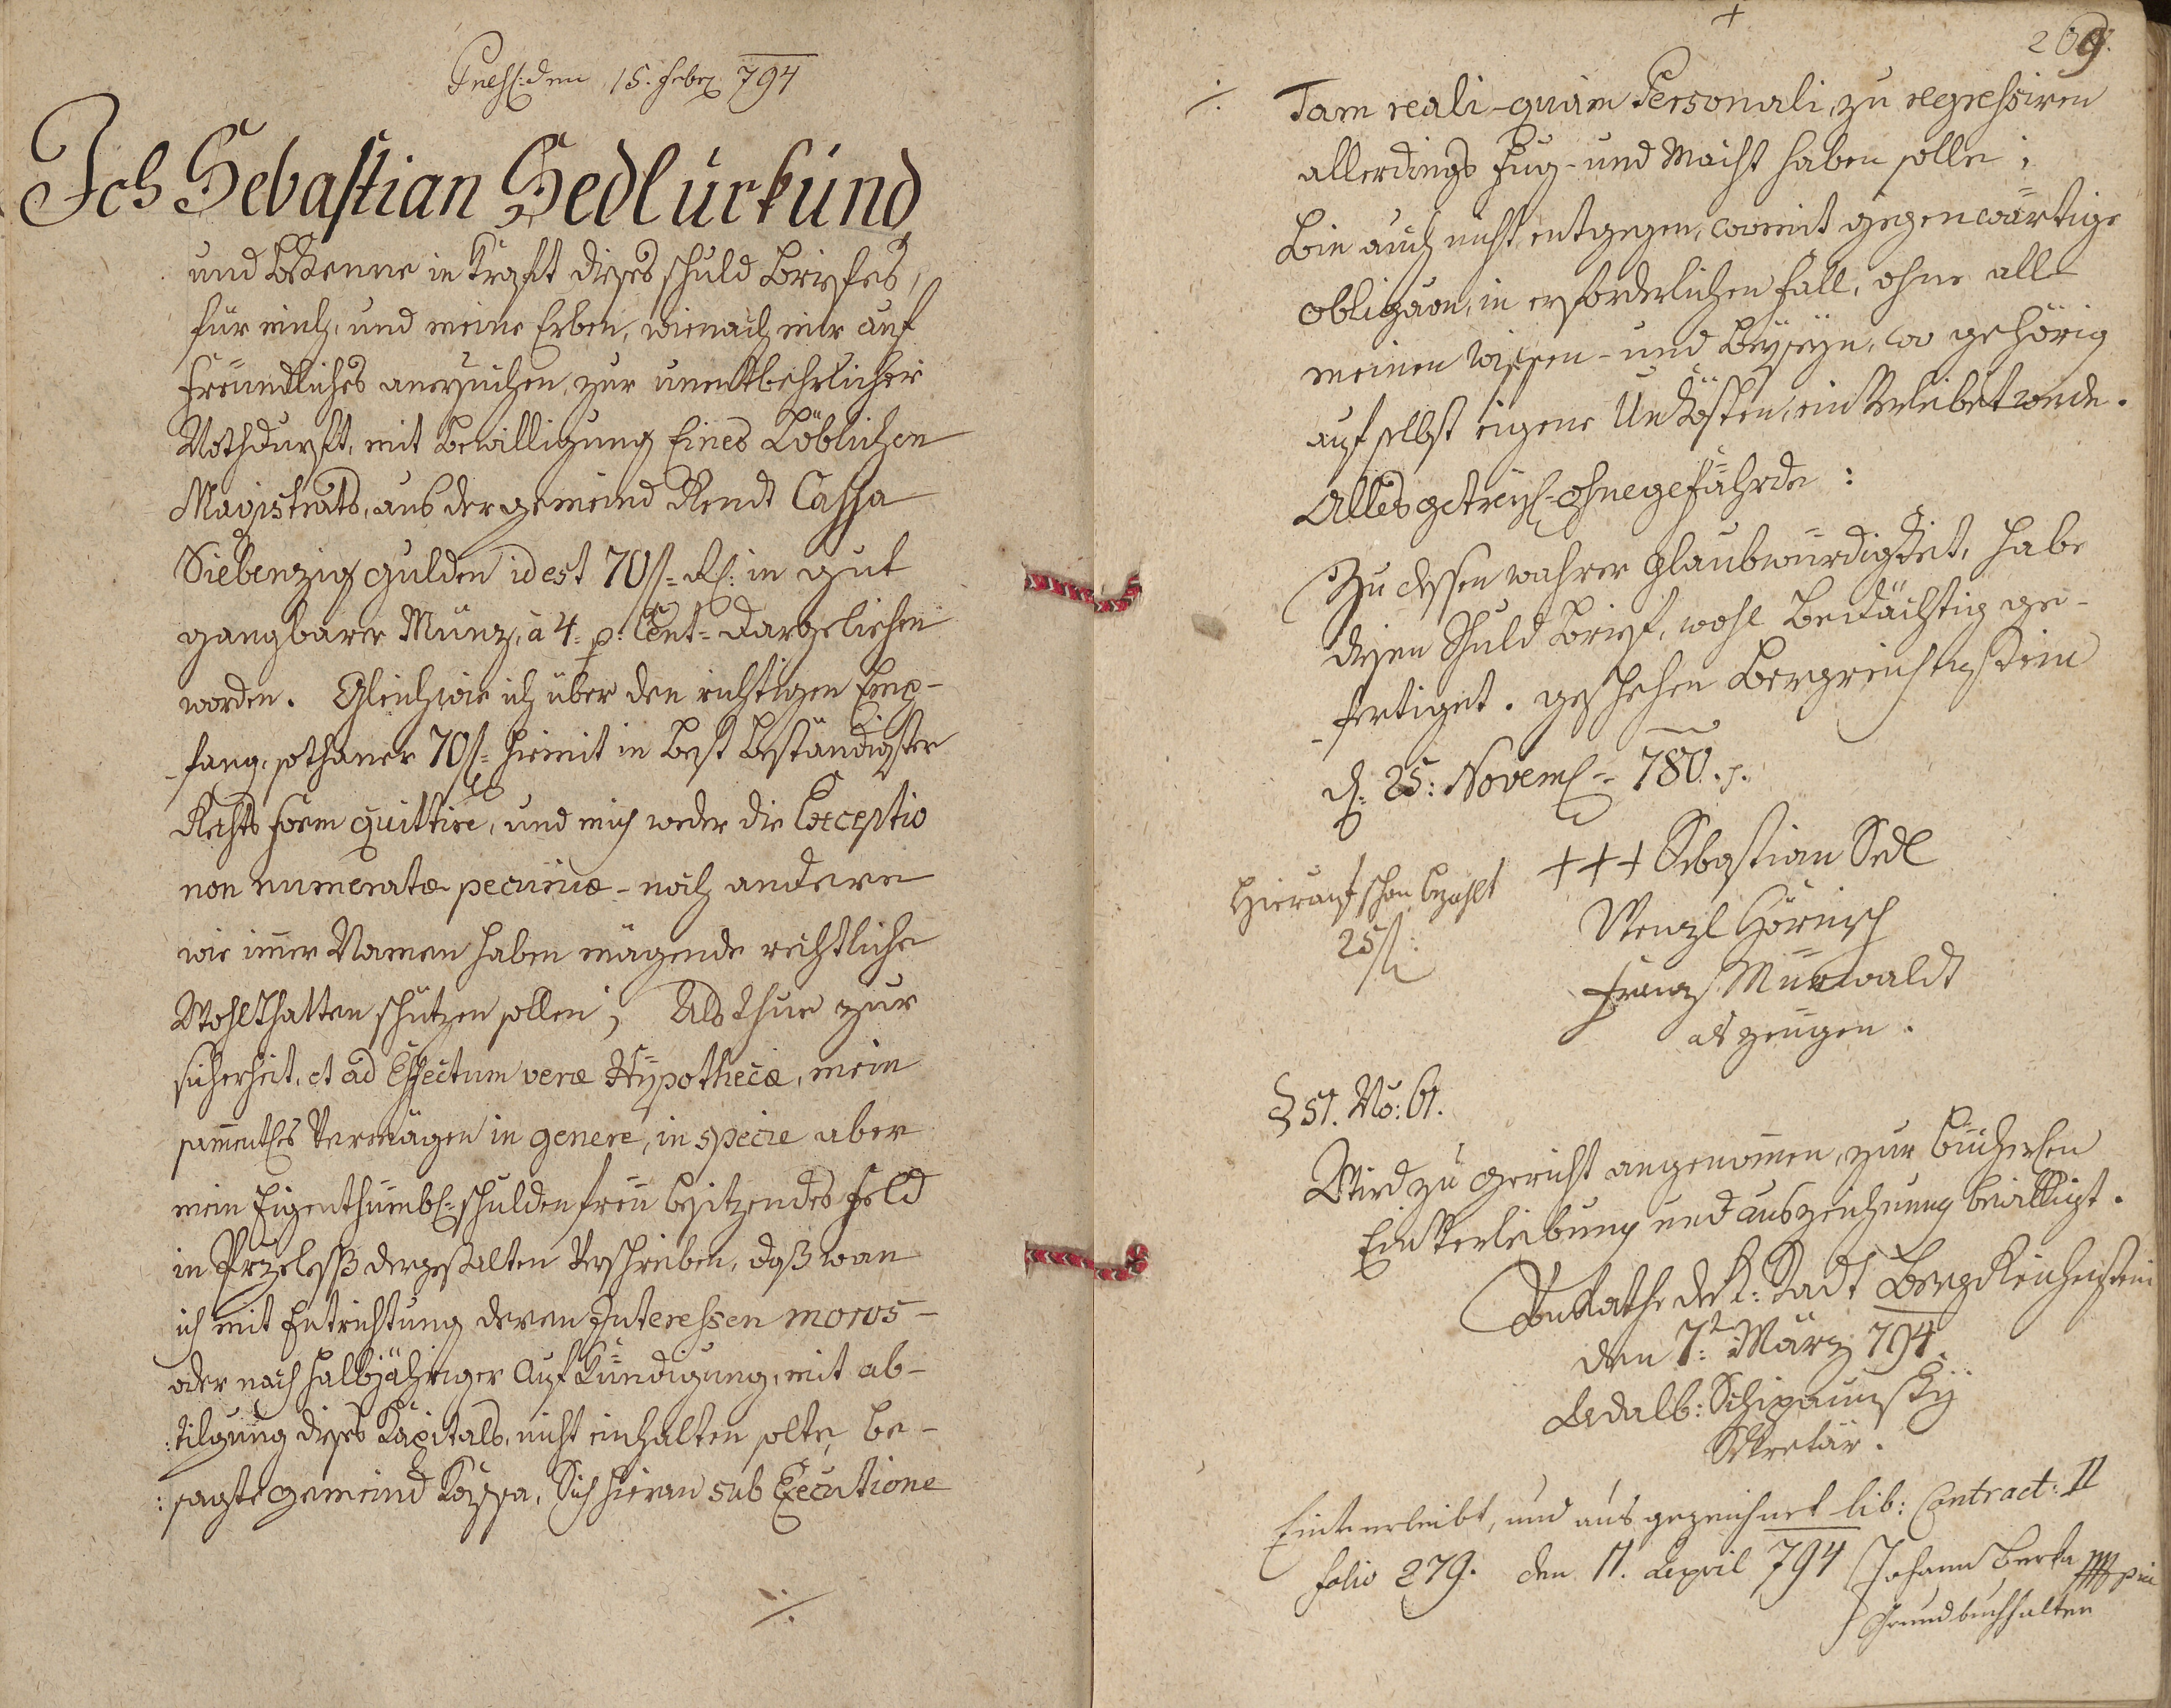 den 15. Febr 794
Ich Sebastian Sedl urkund
und bekenne in Kraft dieses schuld briefes,
für mich, und meine Erben, wienach mir auf
freundliches anersuchen, zur unentbehrlicher
Nothdurft, mit bewilligung Eines Löblichen
Magistrats, aus der gemeind Rendt Cassa
Siebenzig gulden id est 70 f= Rh: in gut
gangbarer Müntz, à 4= p: Cent= dargeliehen
worden. Gleichwie ich über den richtigen Emp-
-fang, sothaner 70 f= hiemit in best beständigster
Rechts form quittire, und mich weder die Exceptio
non numeratæ pecuniæ - noch andere
wie imer Namen haben mögende rechtliche
Wohlthatten schützen sollen; Als thue zur
sicherheit, et ad Effectum veræ Hypothecæ, mein
samentles Vermögen in genere, in specie aber
mein Eigenthümbl: schuldenfreÿ besitzendes Feld
in dergestalten Verschrieben, daß wan
ich mit Entrichtung deren Interessen moros-
oder nach halbjähriger Aufkündigung, mit ab-
:tilgung dieses Kapitals, nicht einhalten solte, be-
:sagte gemeind Kassa, Sich hieran sub Executione
./.
+
269.
./. Tam reali - quam Personali, zu regressiren
allerdings Fug - und Macht haben solle;
Bin auch nicht entgegen, womit gegenwärtige
obligaon, in erforderlichen fall, ohne alle
meinen Wissen - und Beyseyn, wo gehörig
auf selbst eigene Unkösten, ein Verleibet werde.
Alles getreul= ohnegefährde:
Zu dessen wahrer Glaubwürdigkeit, habe
diesen Schuld brief, wohl bedächtig ge-
-fertiget. geschehen Bergreichenstein
d: 25: Novem= 780.
+++ Sebastian Sedl
Hierauf schon bezahlt
25 f:
Wenzl Hörnisch
Frantz Münwaldt
als zeugen.
No: 61.
Wird zu Gericht angenomen, zur bücherlen
Ein Verleibung und auszeichnung bewilligt.
Vom Rathe der K: Stadt BergReichenstein
den 7: März 794.
Adalb:
Sekretär.
Einverleibt, und ausgezeichnet lib: Contract: II
folio 279. den 11. April 794 Johann Berka
Grundbuchhalter